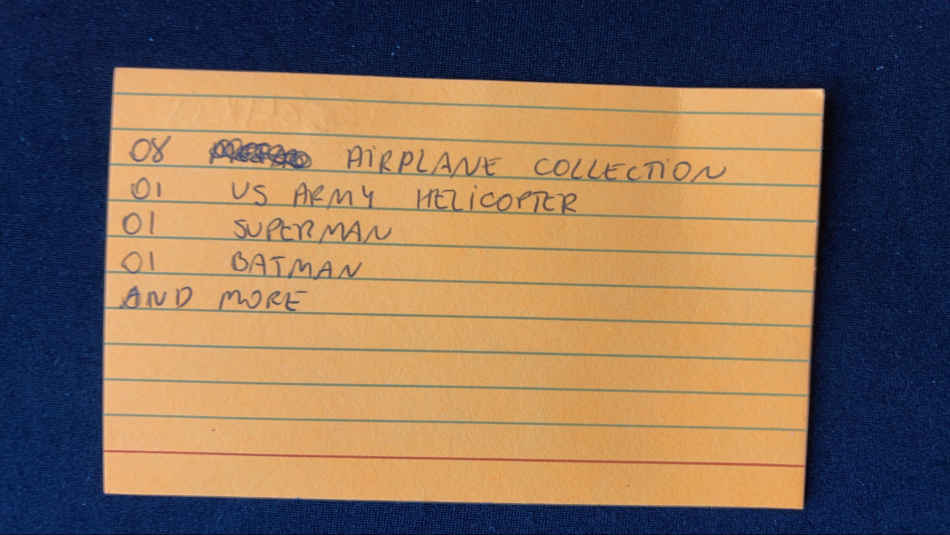 08 AIRPLANE COLLECTION
01 US ARMY HELICOPTER
01 SUPERMAN
01 BATMAN
AND MORE